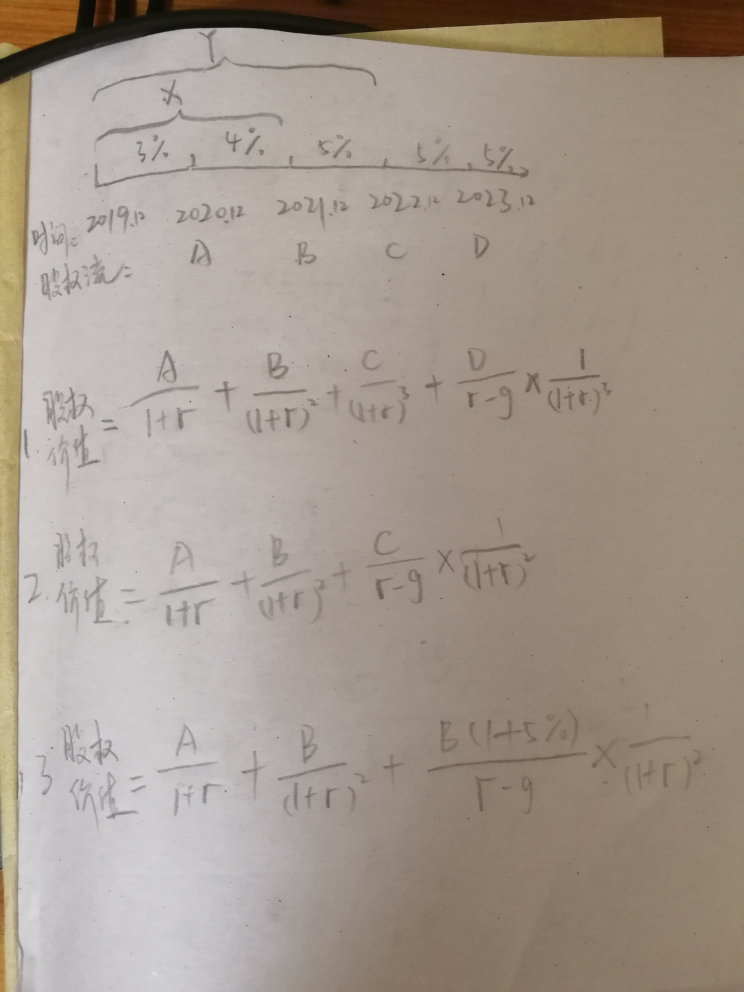 Y
X
3% 4% 5% 5% 5%
时间: 2019.12 2020.12 2021.12 2022.12 2023.12
股权流: A B C D
1. 股权价值 = A/(1+r) + B/(1+r)² + C/(1+r)³ + D/(r-g) × 1/(1+r)³
2. 股权价值 = A/(1+r) + B/(1+r)² + C/(r-g) × 1/(1+r)²
3 股权价值 = A/(1+r) + B/(1+r)² + B(1+5%)/(r-g) × 1/(1+r)²